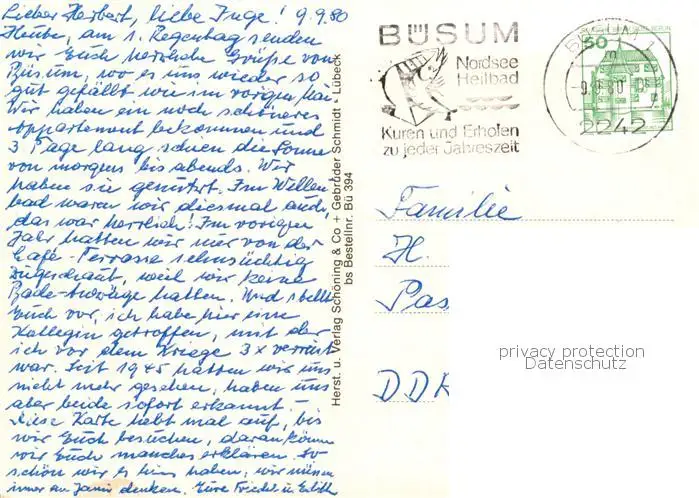 Lieber Herbert, liebe Inge! 9.9.80
Heute, am 1. Regentag senden
wir Euch herzliche Grüße von
Büsum, wo es uns wieder so
gut gefällt wie im vorigen Mai.
Wir haben ein noch schöneres
Appartement bekommen und
3 Tage lang schien die Sonne
von morgens bis abends. Wir
haben sie genutzt. Im Wellen
bad waren wir diesmal auch,
das war herrlich! Im vorigen
Jahr hatten wir nur von der
Café-Terrasse sehnsüchtig
zugeschaut, weil wir keine
Bade-Anzüge hatten. Und stellt
Euch vor, ich habe hier eine
Kollegin getroffen, mit der
ich vor dem Kriege 3x verreist
war. Seit 1945 hatten wir uns
nicht mehr gesehen, haben uns
aber beide sofort erkannt. –
Diese Karte hebt mal auf, bis
wir Euch besuchen, daran können
wir Euch manches erklären. So
schön wir es hier haben, wir müssen
immer an denken. Eure Friedel u. Edith
Herst. u. Verlag Schöning & Co + Gebrüder Schmidt · Lübeck
bs Bestellnr. Bü 394
BÜSUM
Nordsee
Heilbad
Kuren und Erholen
zu jeder Jahreszeit
BÜSUM 1
m
-9.9.80
2242
50
BERLIN
Familie
H.
Pas
DDR
privacy protection
Datenschutz